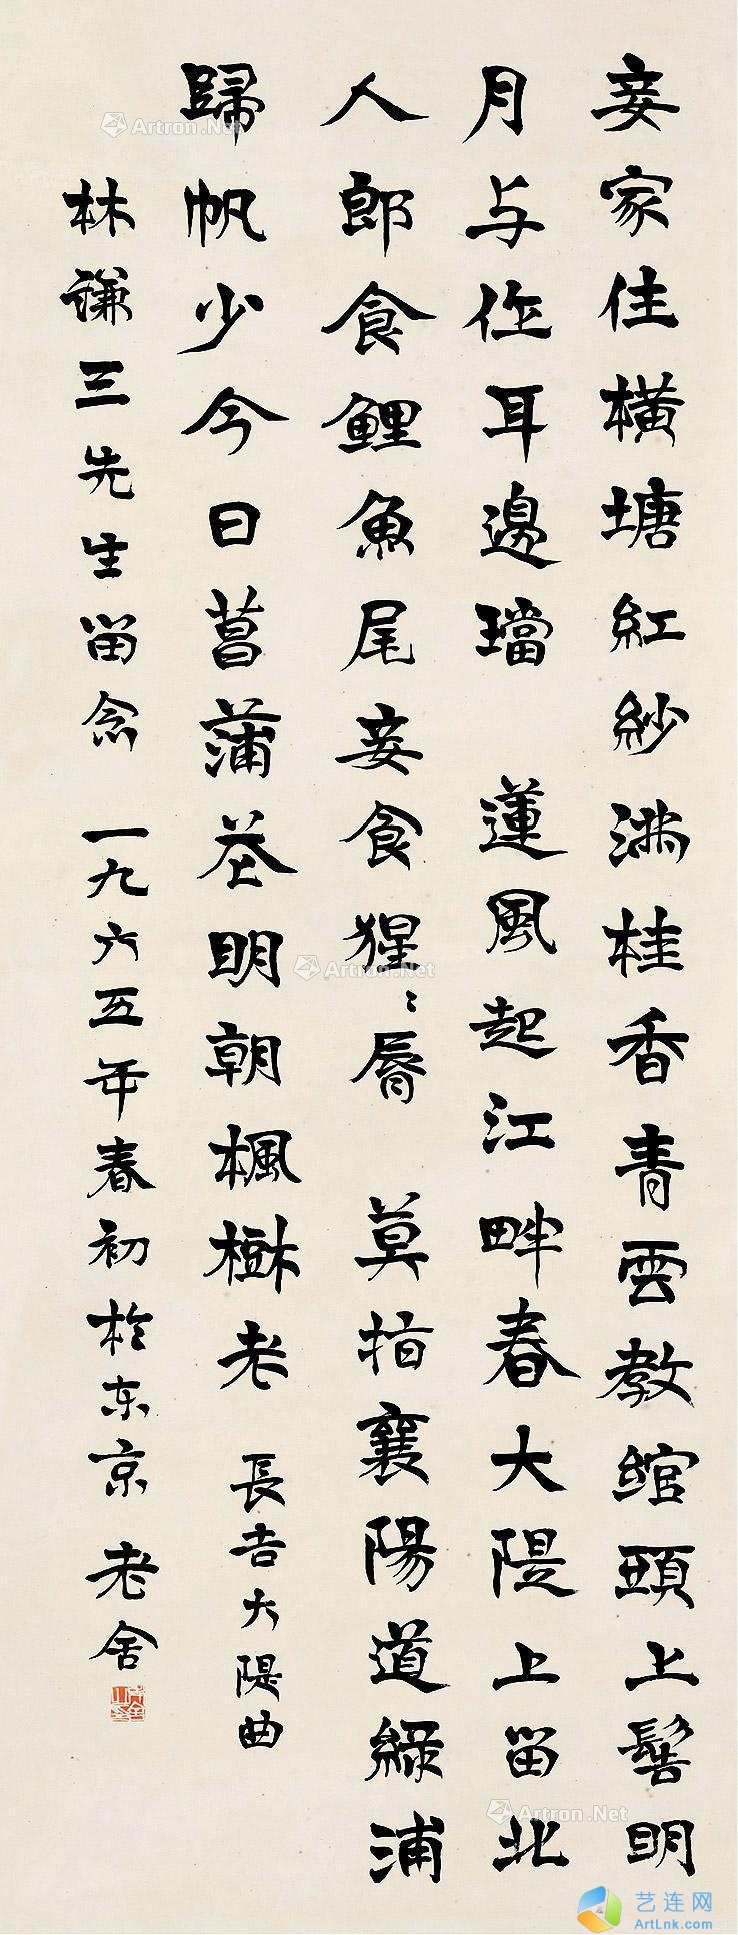 妾家住橫塘紅紗滿桂香青雲教綰頭上髻明
月与作耳邊璫 蓮風起江畔春大隄上留北
人郎食鯉魚尾妾食猩〻脣 莫指襄陽道綠浦
歸帆少今日菖蒲花明朝楓樹老 長吉大隄曲
林謙三先生留念 一九六五年春初於东京 老舍
Artron.Net
Artron.Net
Artron.Net
Artron.Net
艺连网
ArtLnk.com